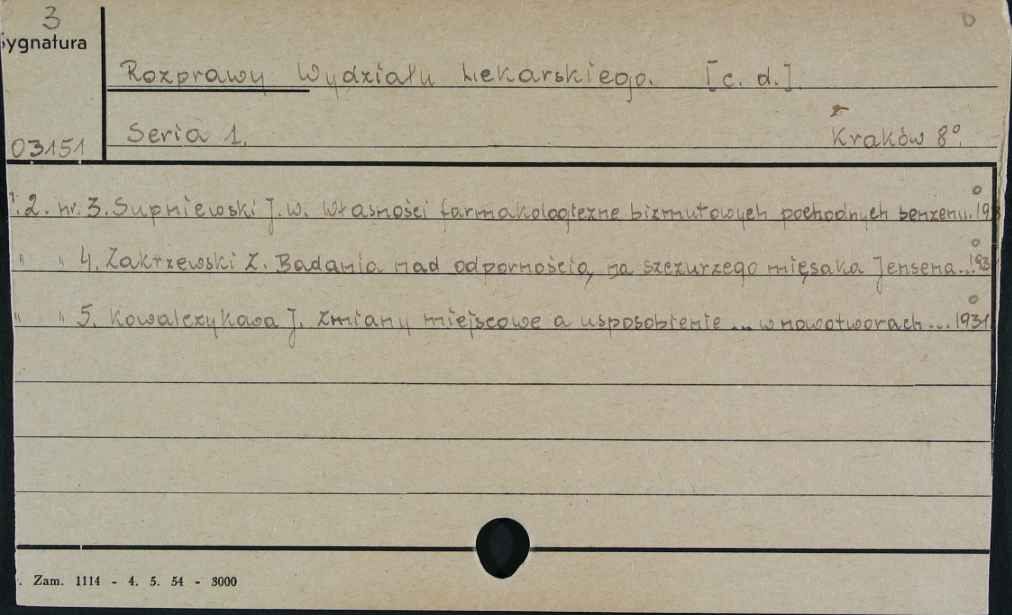 3
Sygnatura
Rozprawy Wydziału Lekarskiego. [c. d.].
Seria 1. Kraków 8°.
03151
2. nr. 3. Supniewski J. W. Własności farmakologiczne bizmutowych pochodnych benzenu.
" " 4. Zakrzewski Z. Badania nad odpornością na szczurzego mięsaka Jensena...
" " 5. Kowalczykowa J. Zmiany miejscowe a usposobienie ... w nowotworach ... 1931
Zam. 1114 - 4. 5. 54 - 3000